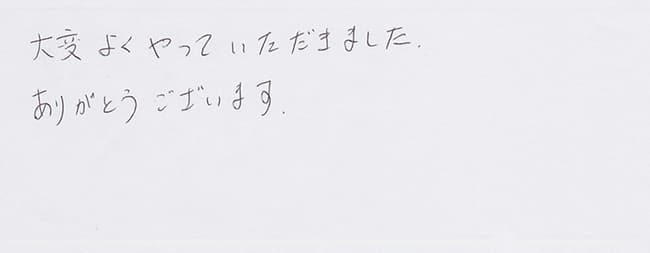 大変よくやっていただきました.
ありがとうございます.